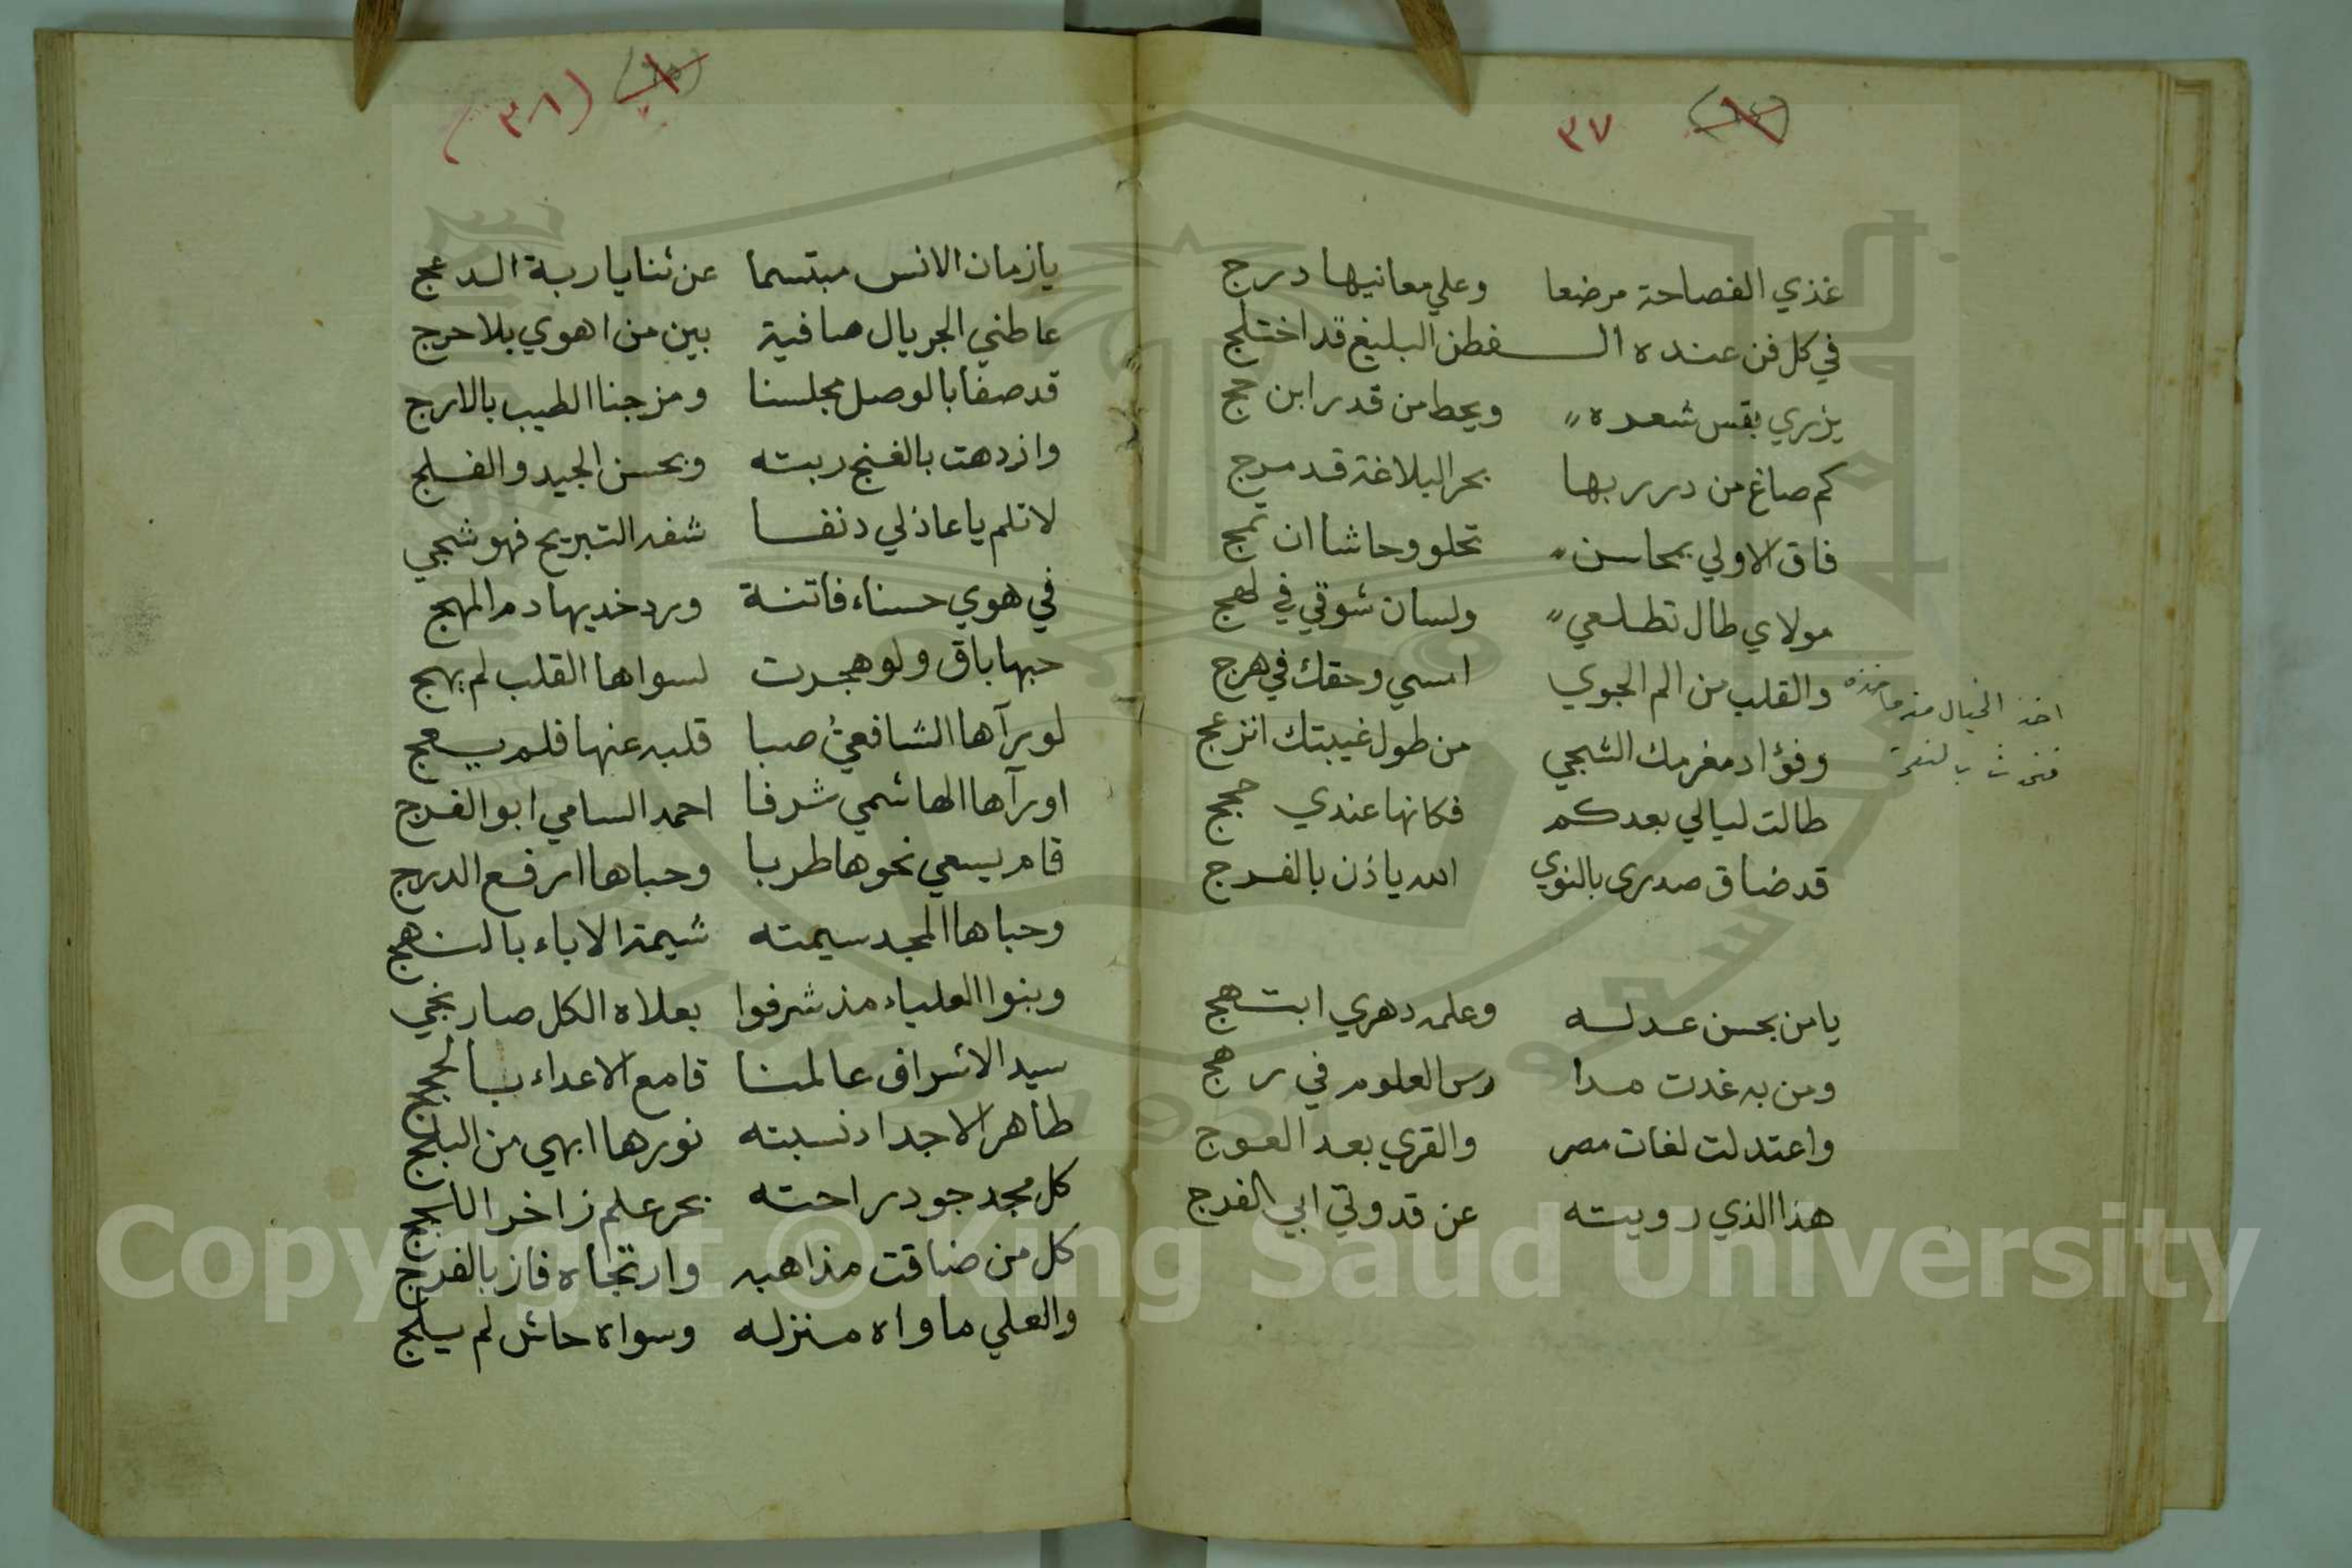 ٣٧
غذي الفصاحة مرضعا وعلي معانيها درج
في كل فن عنده الفطن البليغ قد اختلج
يزري بقس شعره ويحط من قدر ابن حج
كم صاغ من درر بها بحر البلاغة قد مرج
فاق الاولي بمحاسن تحلو وحاشا ان تمج
مولاي طال تطلعي ولسان شوقي في لهج
والقلب من الم الجوي امسي وحقك في هرج
وفؤاد مغرمك الشجي من طول غيبتك انزعج
طالت ليالي بعدكم فكانها عندي حجج
قد ضاق صدري بالنوي الله ياذن بالفرج
اخذ الخيال
يا من بحسن عدله وعلمه دهري ابتهج
ومن به غدت مدا رس العلوم في رهج
واعتدلت لغات مصر والقري بعد العوج
هذا الذي رويته عن قدوتي ابي الفرج
(٣٨)
يا زمان الانس مبتسما عن ثنايا ربة الدعج
عاطني الجريال صافية بين من اهوي بلا حرج
قد صفا بالوصل مجلسنا ومزجنا الطيب بالارج
وازدهت بالغنج ربته وبحسن الجيد والفلج
لا تلم يا عاذلي دنفا شفه التبريح فهو شجي
في هوي حسناء فاتنة ورد خديها دم المهج
حبها باق ولو هجرت لسواها القلب لم يهج
لو رآها الشافعيُّ صبا قلبه عنها فلم يعج
او رآها الهاشمي شرفا احمد السامي ابو الفرج
قام يسعي نحوها طربا وحباها ارفع الدرج
وحباها المجد سيمته شيمة الاباء بالنهج
وبنوا العلياء مذ شرفوا بعلاه الكل صار نجي
سيد الاشراف عالمنا قامع الاعداء بالحجج
طاهر الاجداد نسبته نورها ابهي من البلج
كل مجد جود راحته بحر علم زاخر اللجج
كل من ضاقت مذاهبه وارتجاه فاز بالفرج
والعلي ماواه منزله وسواه حائل لم يلج
Copyright © King Saud University